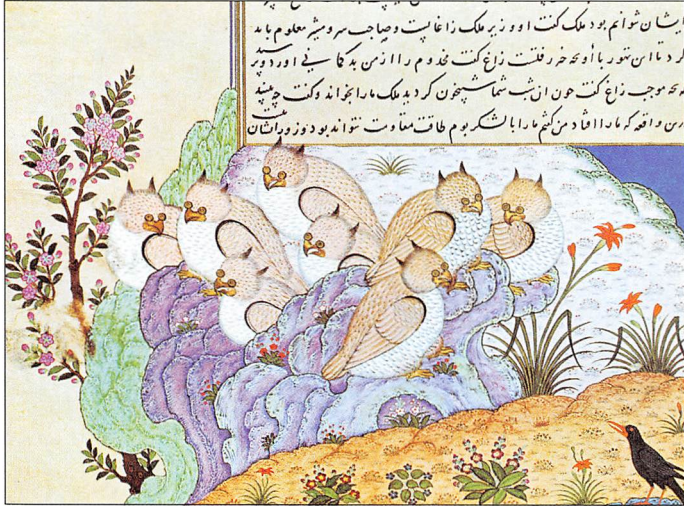 ایشان شوانم بود ملک گفت او وزیر ملک زاغانست و صاحب سر و مشیر معلوم باید
کرد تا این تهور با او بچه زاغ گفت مخدوم را از من بد کمانی اورد پرسید
بچه موجب زاغ گفت چون ان شب شما شبیخون کردید ملک مارا بخواند و گفت چه
درین واقعه که مارا افتاد من گفتم مارا با لشکر بوم طاقت مقاومت نتواند بود و زور ایشان